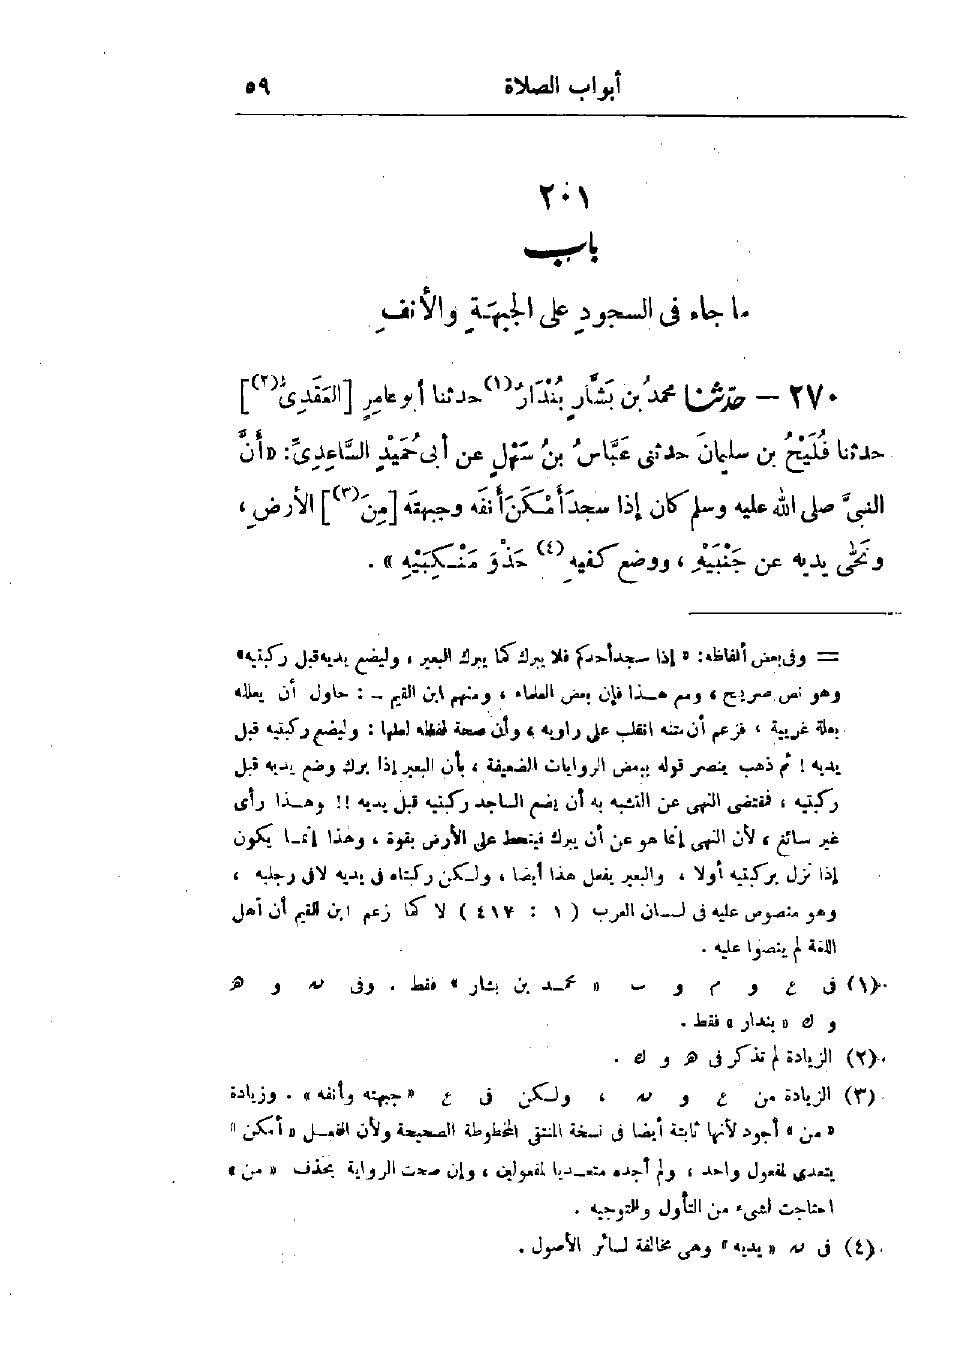 أبواب الصلاة ٥٩
٢٠١
باب
ما جاء فى السجودِ على الجبهَةِ والأنفِ
٢٧٠ — حدّثنا محمدُ بن بَشَّارٍ بُنْدَارٌ(١) حدثنا أبو عامِرٍ [العَقَدِىُّ(٢)]
حدثنا فُلَيْحُ بن سليمانَ حدثنى عَبَّاسُ بنُ سَهْلٍ عن أبى حُمَيْدٍ السَّاعِدِىِّ: «أَنَّ
النبىَّ صلى الله عليه وسلم كان إذا سجد أَمْكَنَ أنفَه وجبهتَه [مِنَ(٣)] الأرضِ،
ونَحَّى يديه عن جَنْبَيْهِ، ووضع كفيهِ(٤) حَذْوَ مَنْكِبَيْهِ».
= وفى بعض ألفاظه: «إذا سجد أحدكم فلا يبرك كما يبرك البعير، وليضع يديه قبل ركبتيه»
وهو نص صريح، ومع هذا فإن بعض العلماء، ومنهم ابن القيم -: حاول أن يعلله
بعلة غريبة، فزعم أن متنه انقلب على راويه، وأن صحة لفظه لعلها: وليضع ركبتيه قبل
يديه! ثم ذهب ينصر قوله ببعض الروايات الضعيفة، بأن البعير إذا برك وضع يديه قبل
ركبتيه، فمقتضى النهى عن التشبه به أن يضع الساجد ركبتيه قبل يديه!! وهذا رأى
غير سائغ، لأن النهى إنما هو عن أن يبرك فينحط على الأرض بقوة، وهذا إنما يكون
إذا نزل بركبتيه أولا، والبعير يفعل هذا أيضا، ولكن ركبتاه فى يديه لا فى رجليه،
وهو منصوص عليه فى لسان العرب (١ : ٤١٧) لا كما زعم ابن القيم أن أهل
اللغة لم ينصوا عليه.
(١) فى ع و م و ب «محمد بن بشار» فقط. وفى ـه و ه
و ك «بندار» فقط.
(٢) الزيادة لم تذكر فى ه و ك.
(٣) الزيادة من ع و ـه، ولكن فى ع «جبهته وأنفه». وزيادة
«من» أجود لأنها ثابتة أيضا فى نسخة المنتقى المخطوطة الصحيحة ولأن الفعل «أمكن»
يتعدى لمفعول واحد، ولم أجده متعديا لمفعولين، وإن صحت الرواية بحذف «من»
احتاجت لشىء من التأول والتوجيه.
(٤) فى ـه «يديه» وهى مخالفة لسائر الأصول.